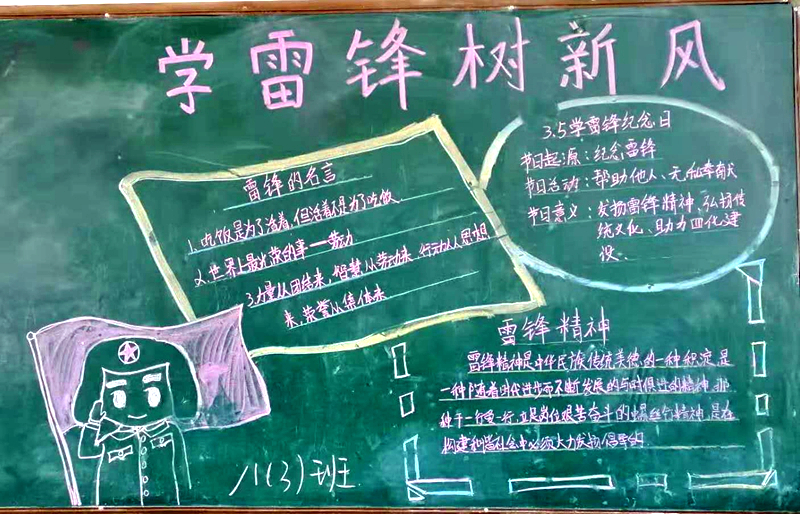 学雷锋树新风
雷锋的名言
1.吃饭是为了活着,但活着不是为了吃饭
2.世界上最光荣的事——劳动
3.力量从团结来,智慧从劳动来,行动从思想
来,荣誉从集体来
3.5学雷锋纪念日
节日起源:纪念雷锋
节日活动:帮助他人、无私奉献
节日意义:发扬雷锋精神、弘扬传
统文化、助力四化建
设。
雷锋精神
雷锋精神是中华民族传统美德的一种积淀,是
一种随着时代进步而不断发展的与时俱进的精神,那
种干一行爱一行,立足岗位艰苦奋斗的螺丝钉精神,是在
构建和谐社会中必须大力发扬倡导的
八(3)班